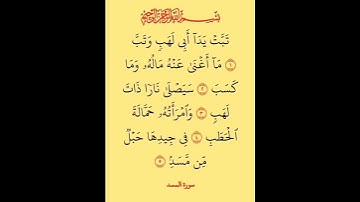 بِسْمِ ٱللَّهِ ٱلرَّحْمَـٰنِ ٱلرَّحِيمِ
تَبَّتْ يَدَآ أَبِى لَهَبٍ وَتَبَّ
١ مَآ أَغْنَىٰ عَنْهُ مَالُهُۥ وَمَا
كَسَبَ ٢ سَيَصْلَىٰ نَارًا ذَاتَ
لَهَبٍ ٣ وَٱمْرَأَتُهُۥ حَمَّالَةَ
ٱلْحَطَبِ ٤ فِى جِيدِهَا حَبْلٌ
مِّن مَّسَدٍۭ ٥
سورة المسد